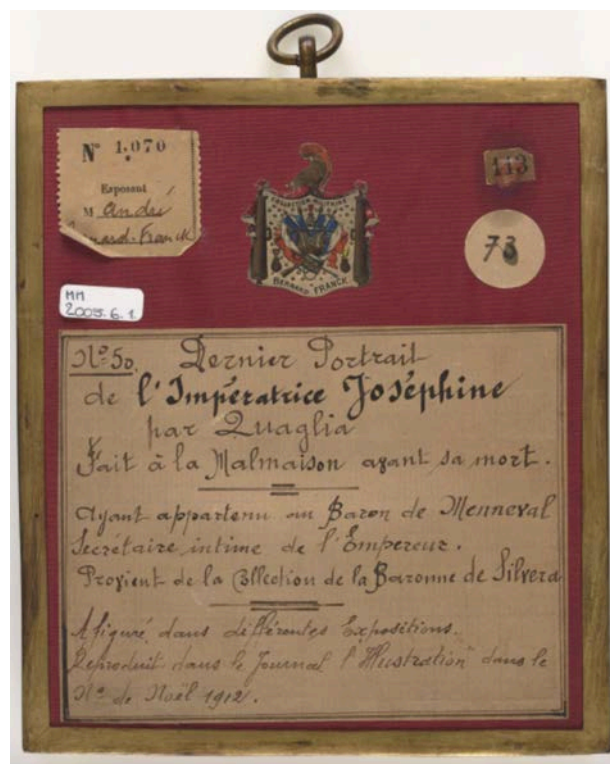 Nº 1,070
Exposant
M André
nard-Franck
COLLECTION MILITAIRE
BERNARD FRANCK
113
73
MM
2005.6.1
Nº 50. Dernier Portrait
de l'Impératrice Joséphine
par Quaglia
Fait à la Malmaison avant sa mort.
Ayant appartenu au Baron de Menneval
Secrétaire intime de l'Empereur.
Provient de la Collection de la Baronne de Silvera
A figuré dans différentes Expositions.
Reproduit dans le Journal l'Illustration" dans le
Nº de Noël 1912.